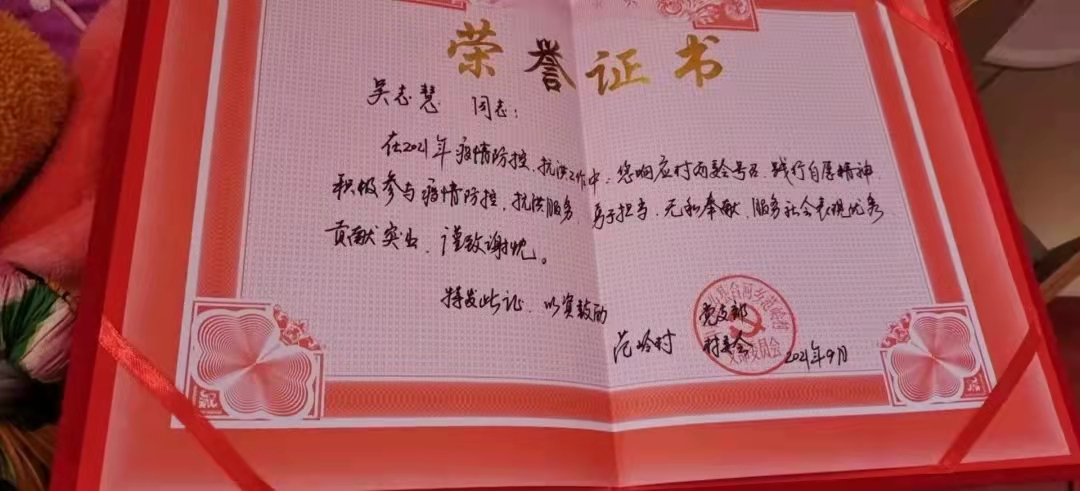 荣誉证书
吴志慧 同志：
在2021年疫情防控、抗洪工作中，您响应村两委会号召，践行自愿精神
积极参与疫情防控、抗洪服务，勇于担当，无私奉献，服务社会表现优秀
贡献突出，谨致谢忱。
特发此证，以资鼓励
范岭村 党支部
村委会 2021年9月